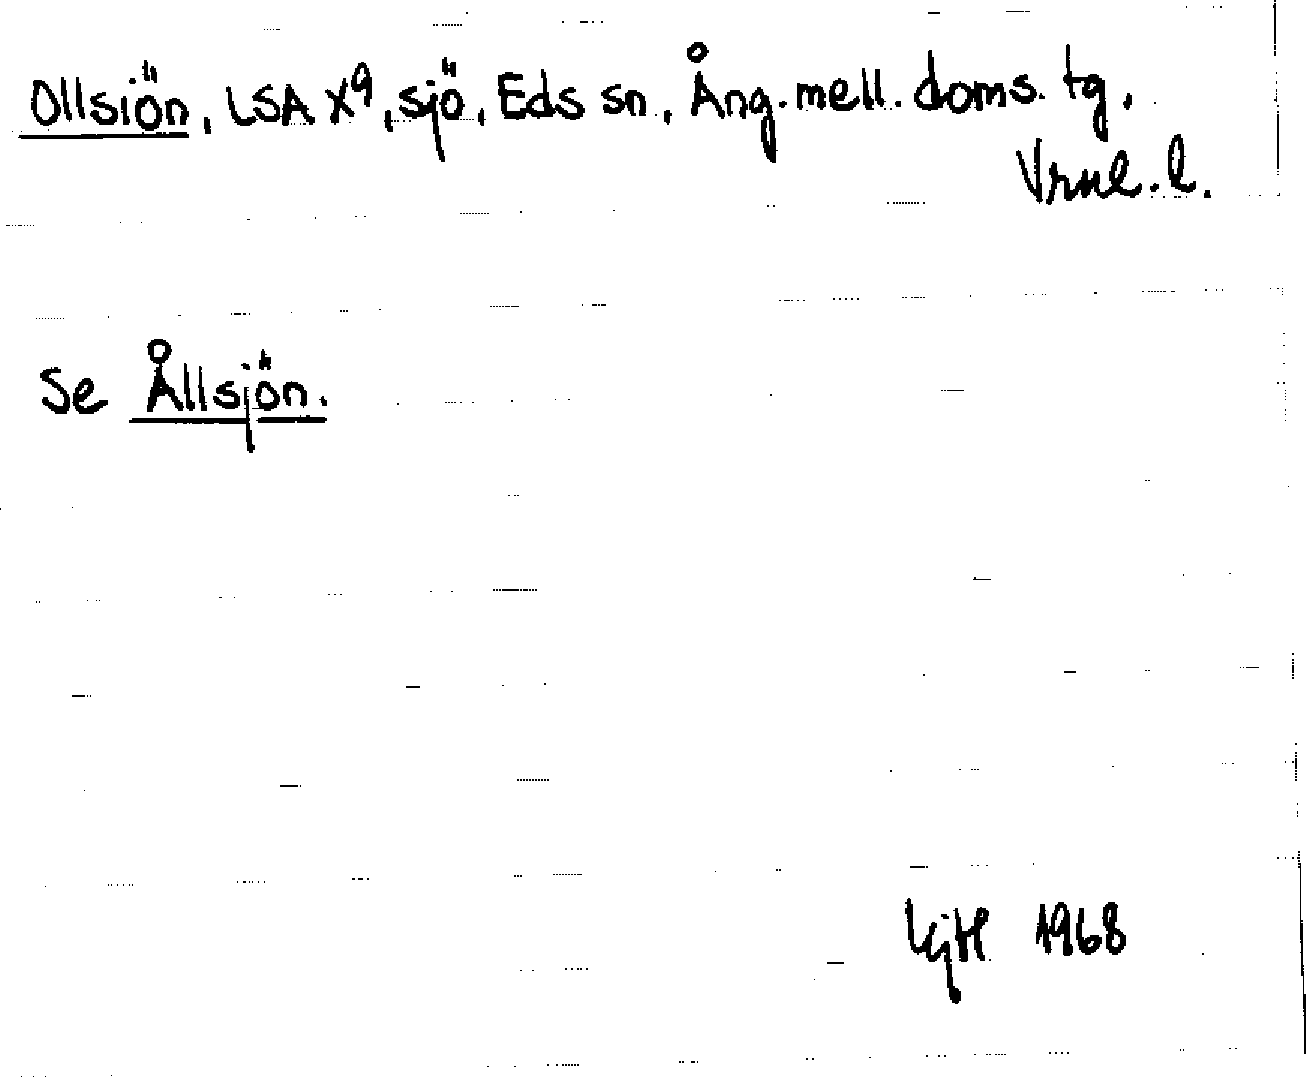 Ollsiön, LSA X9, sjö, Eds sn, Ång. mell. doms. tg,
Vrnl. l.
Se Ållsjön.
1968